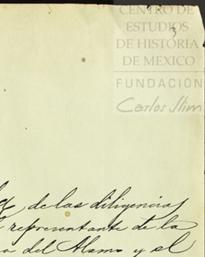 CENTRO DE
ESTUDIOS
DE HISTORIA
DE MEXICO
FUNDACIÓN
Carlos Slim
3
de las diligencias
representante de la
del Alamo y el